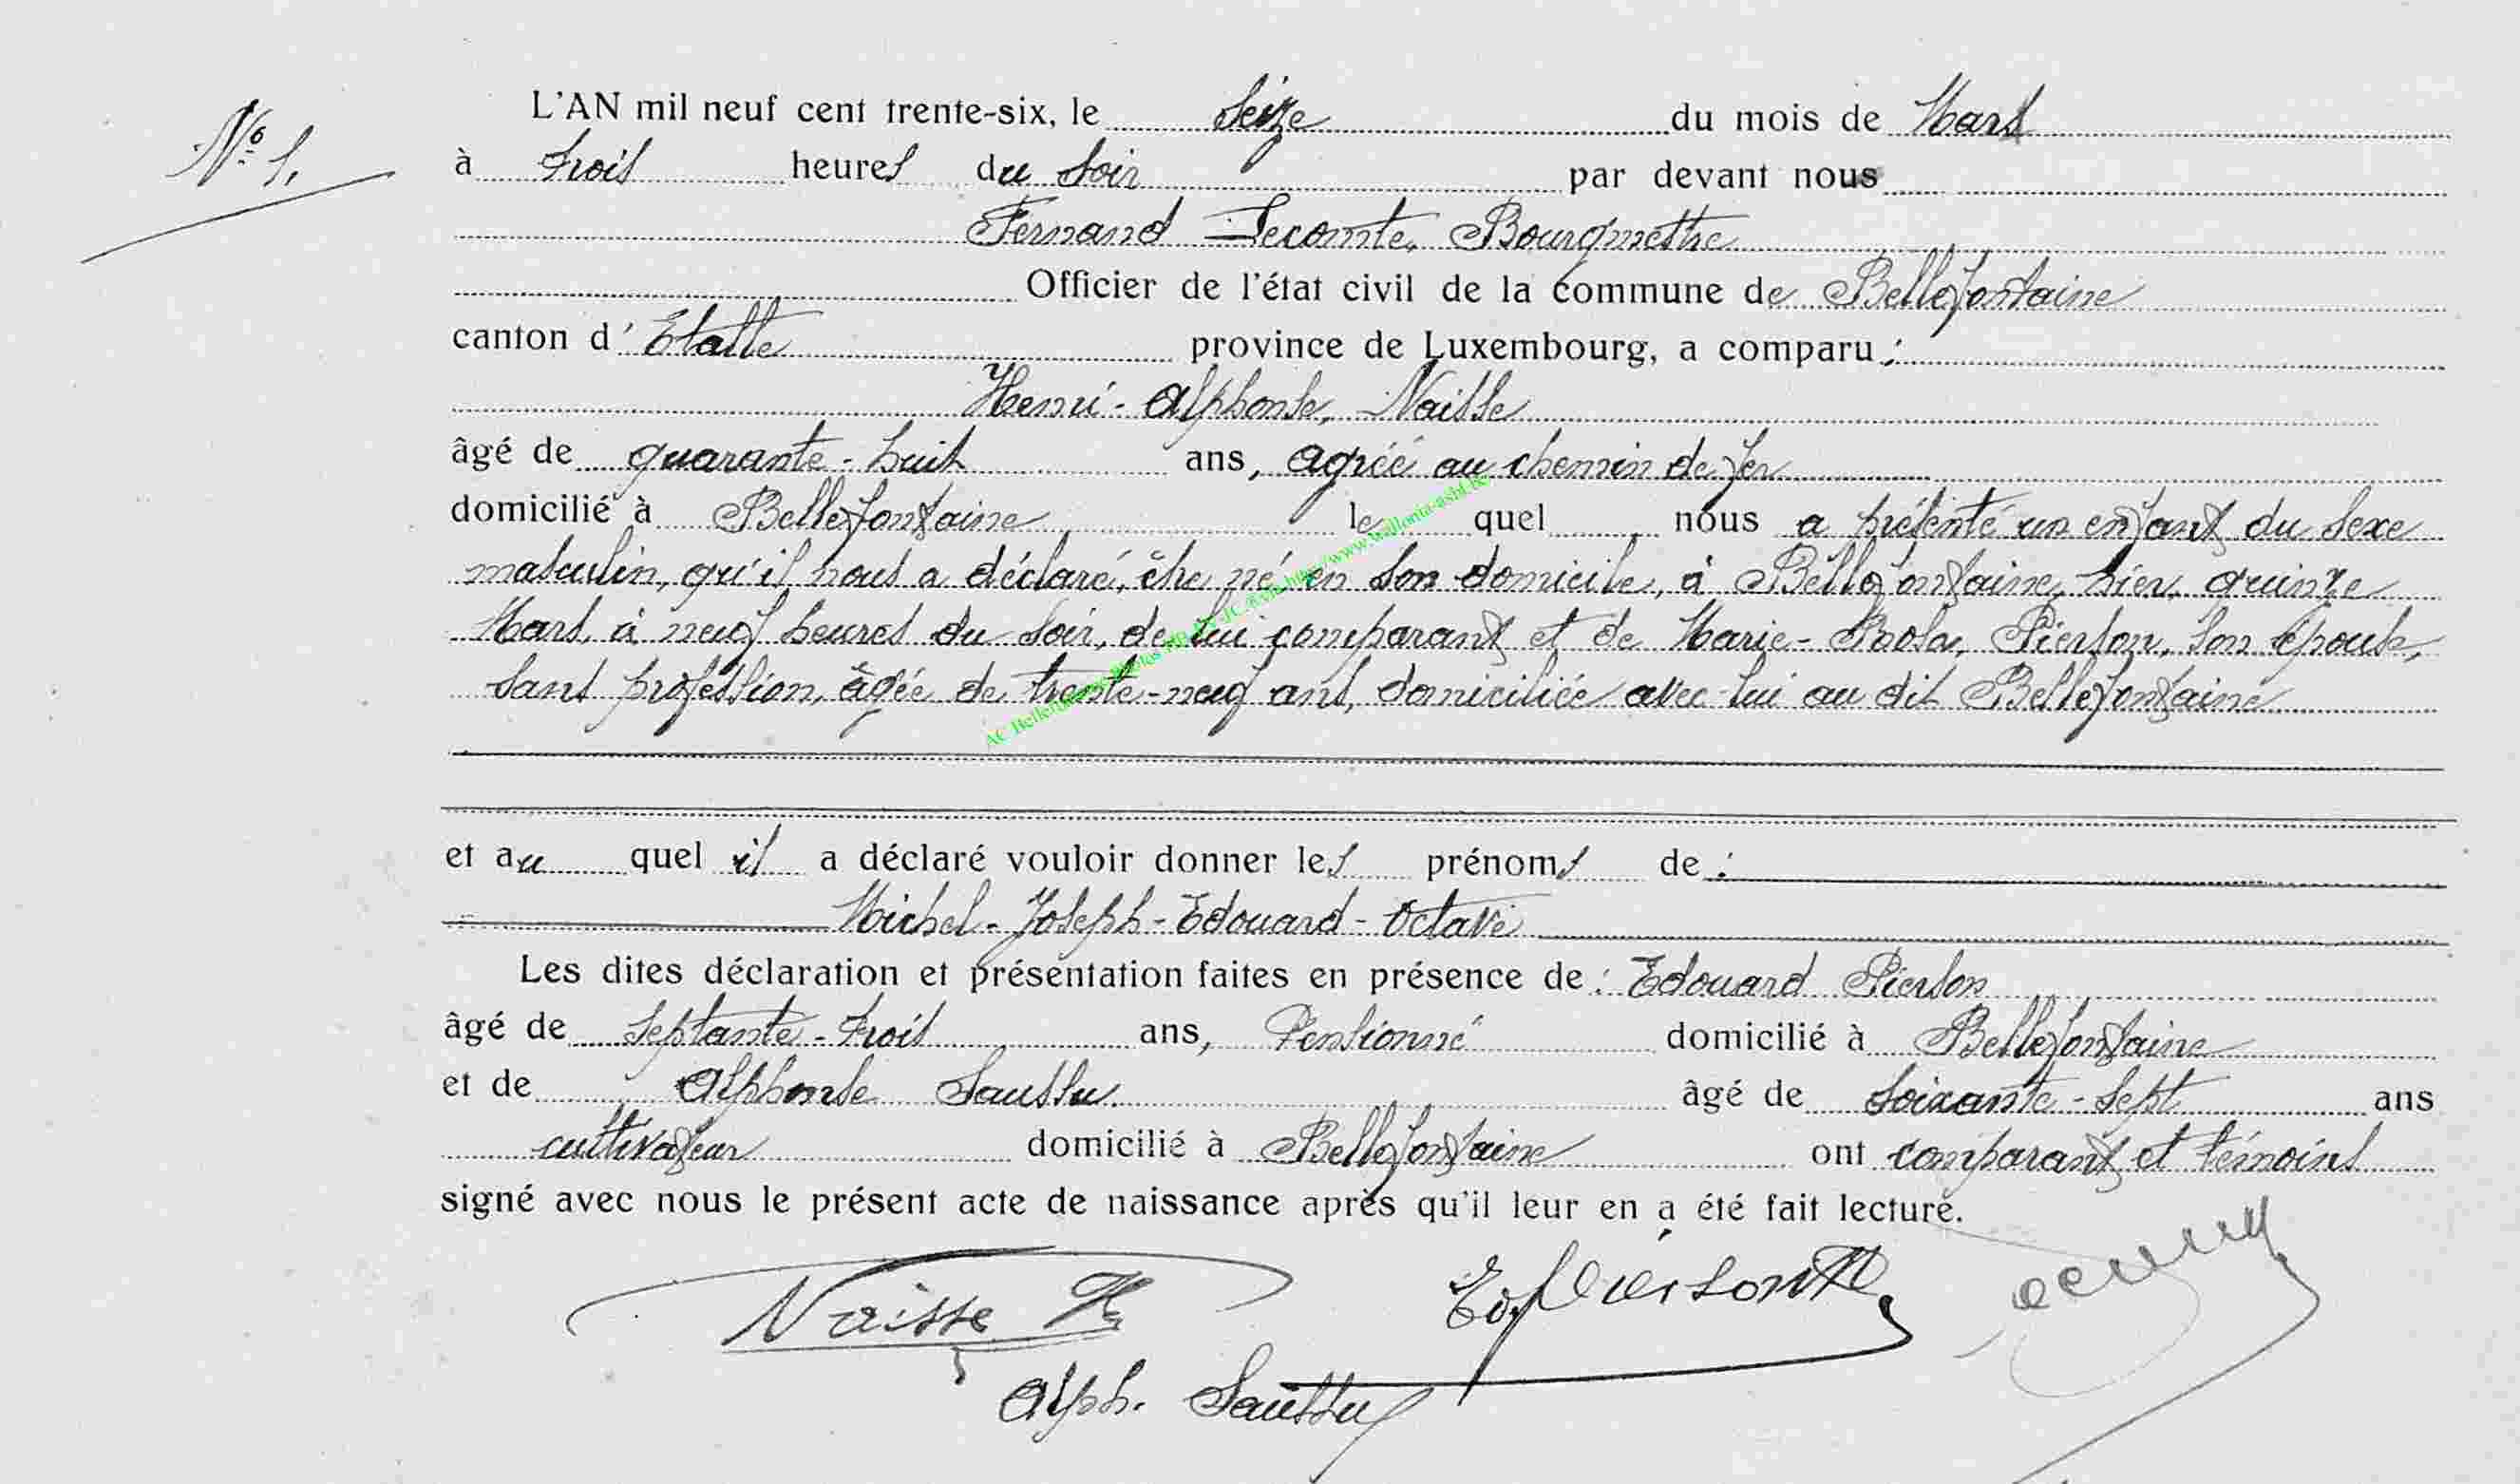 L'AN mil neuf cent trente-six, le Seize du mois de Mars
N° 1.
à trois heures du soir par devant nous
Fernand Lecomte, Bourgmettre
Officier de l'état civil de la commune de Bellefontaine
canton d' Etalle province de Luxembourg, a comparu :
Henri - Alphonse, Naisse
âgé de quarante - huit ans, agréé au chemin de fer
domicilié à Bellefontaine le quel nous a présenté un enfant du sexe
masculin, qu'il nous a déclaré, être né en son domicile, à Bellefontaine, hier, quinze
Mars, à neuf heures du soir, de lui comparant et de Marie - Pierson, son épouse,
sans profession, âgée de trente-neuf ans, domiciliée avec lui au dit Bellefontaine
et au quel il a déclaré vouloir donner les prénoms de :
Michel - Joseph - Edouard - Octave
Les dites déclaration et présentation faites en présence de : Edouard Pierson
âgé de septante - trois ans, Pensionné domicilié à Bellefontaine
et de Alphonse Saussu âgé de soixante - sept ans
cultivateur domicilié à Bellefontaine ont comparant et témoins
signé avec nous le présent acte de naissance après qu'il leur en a été fait lecture.
Naisse H
Ed Pierson
Alph. Saussu